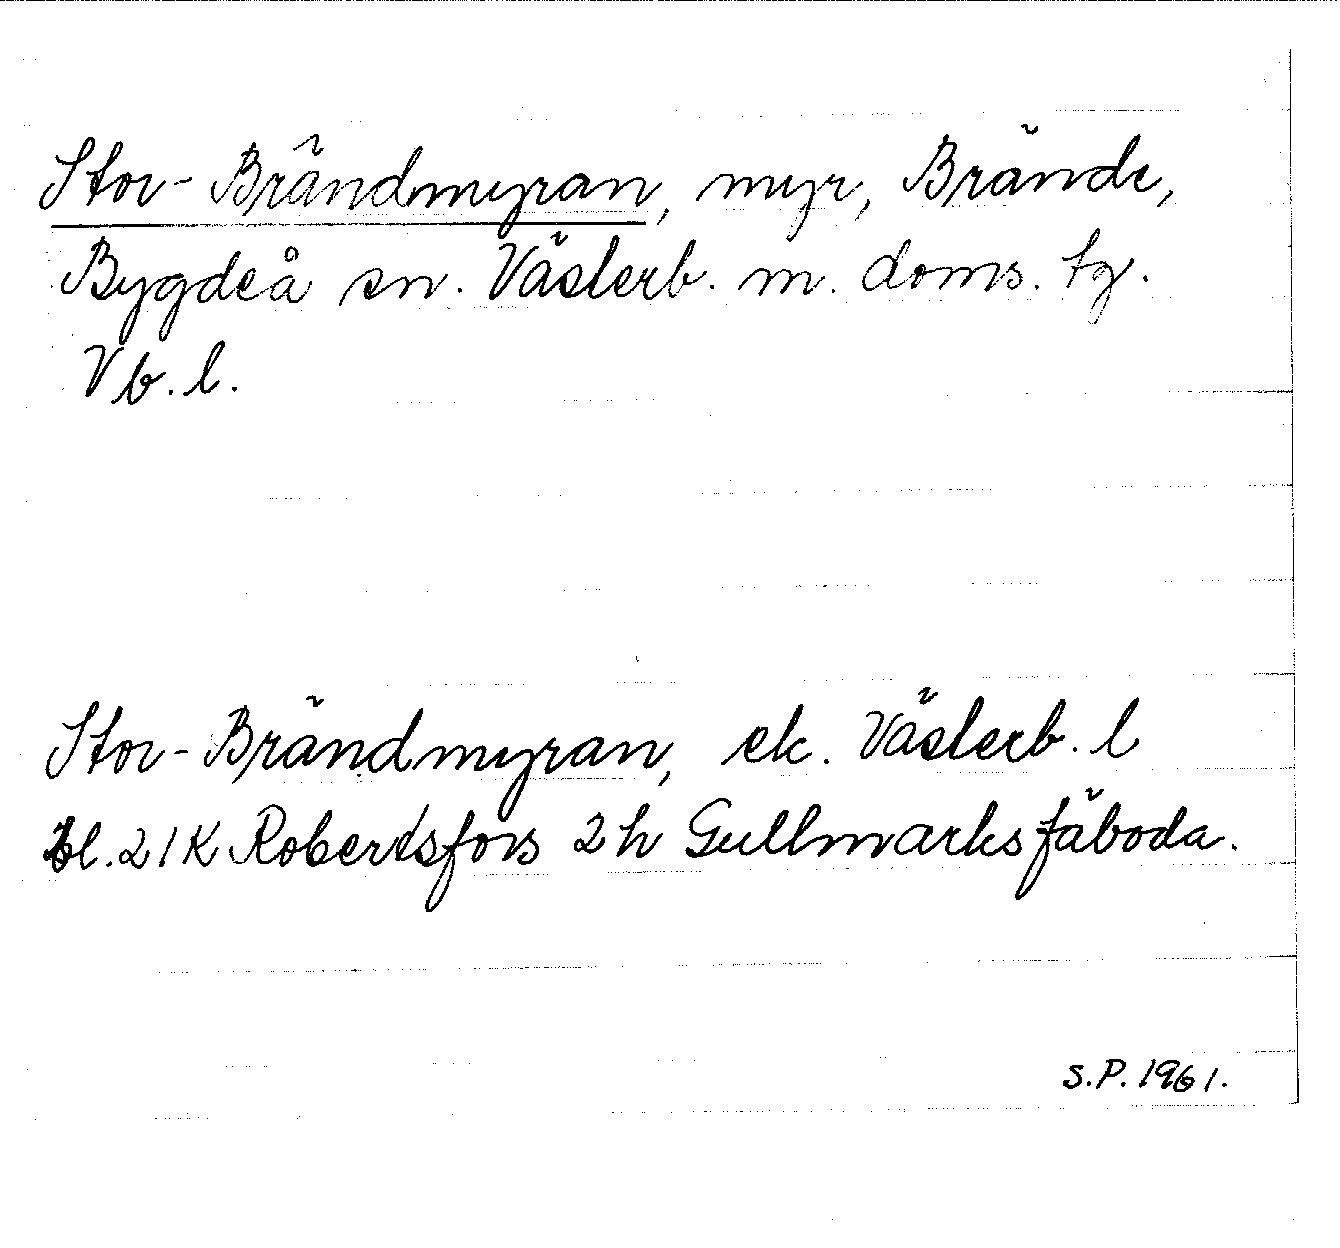 Stor-Brändmyran, myr, Brände,
Bygdeå sn. Västerb. m. doms. tg.
Vb. l.
Stor-Brändmyran, ek. Västerb. l
bl. 21K Robertsfors 2h Gullmarksfäboda.
S.P. 1961.